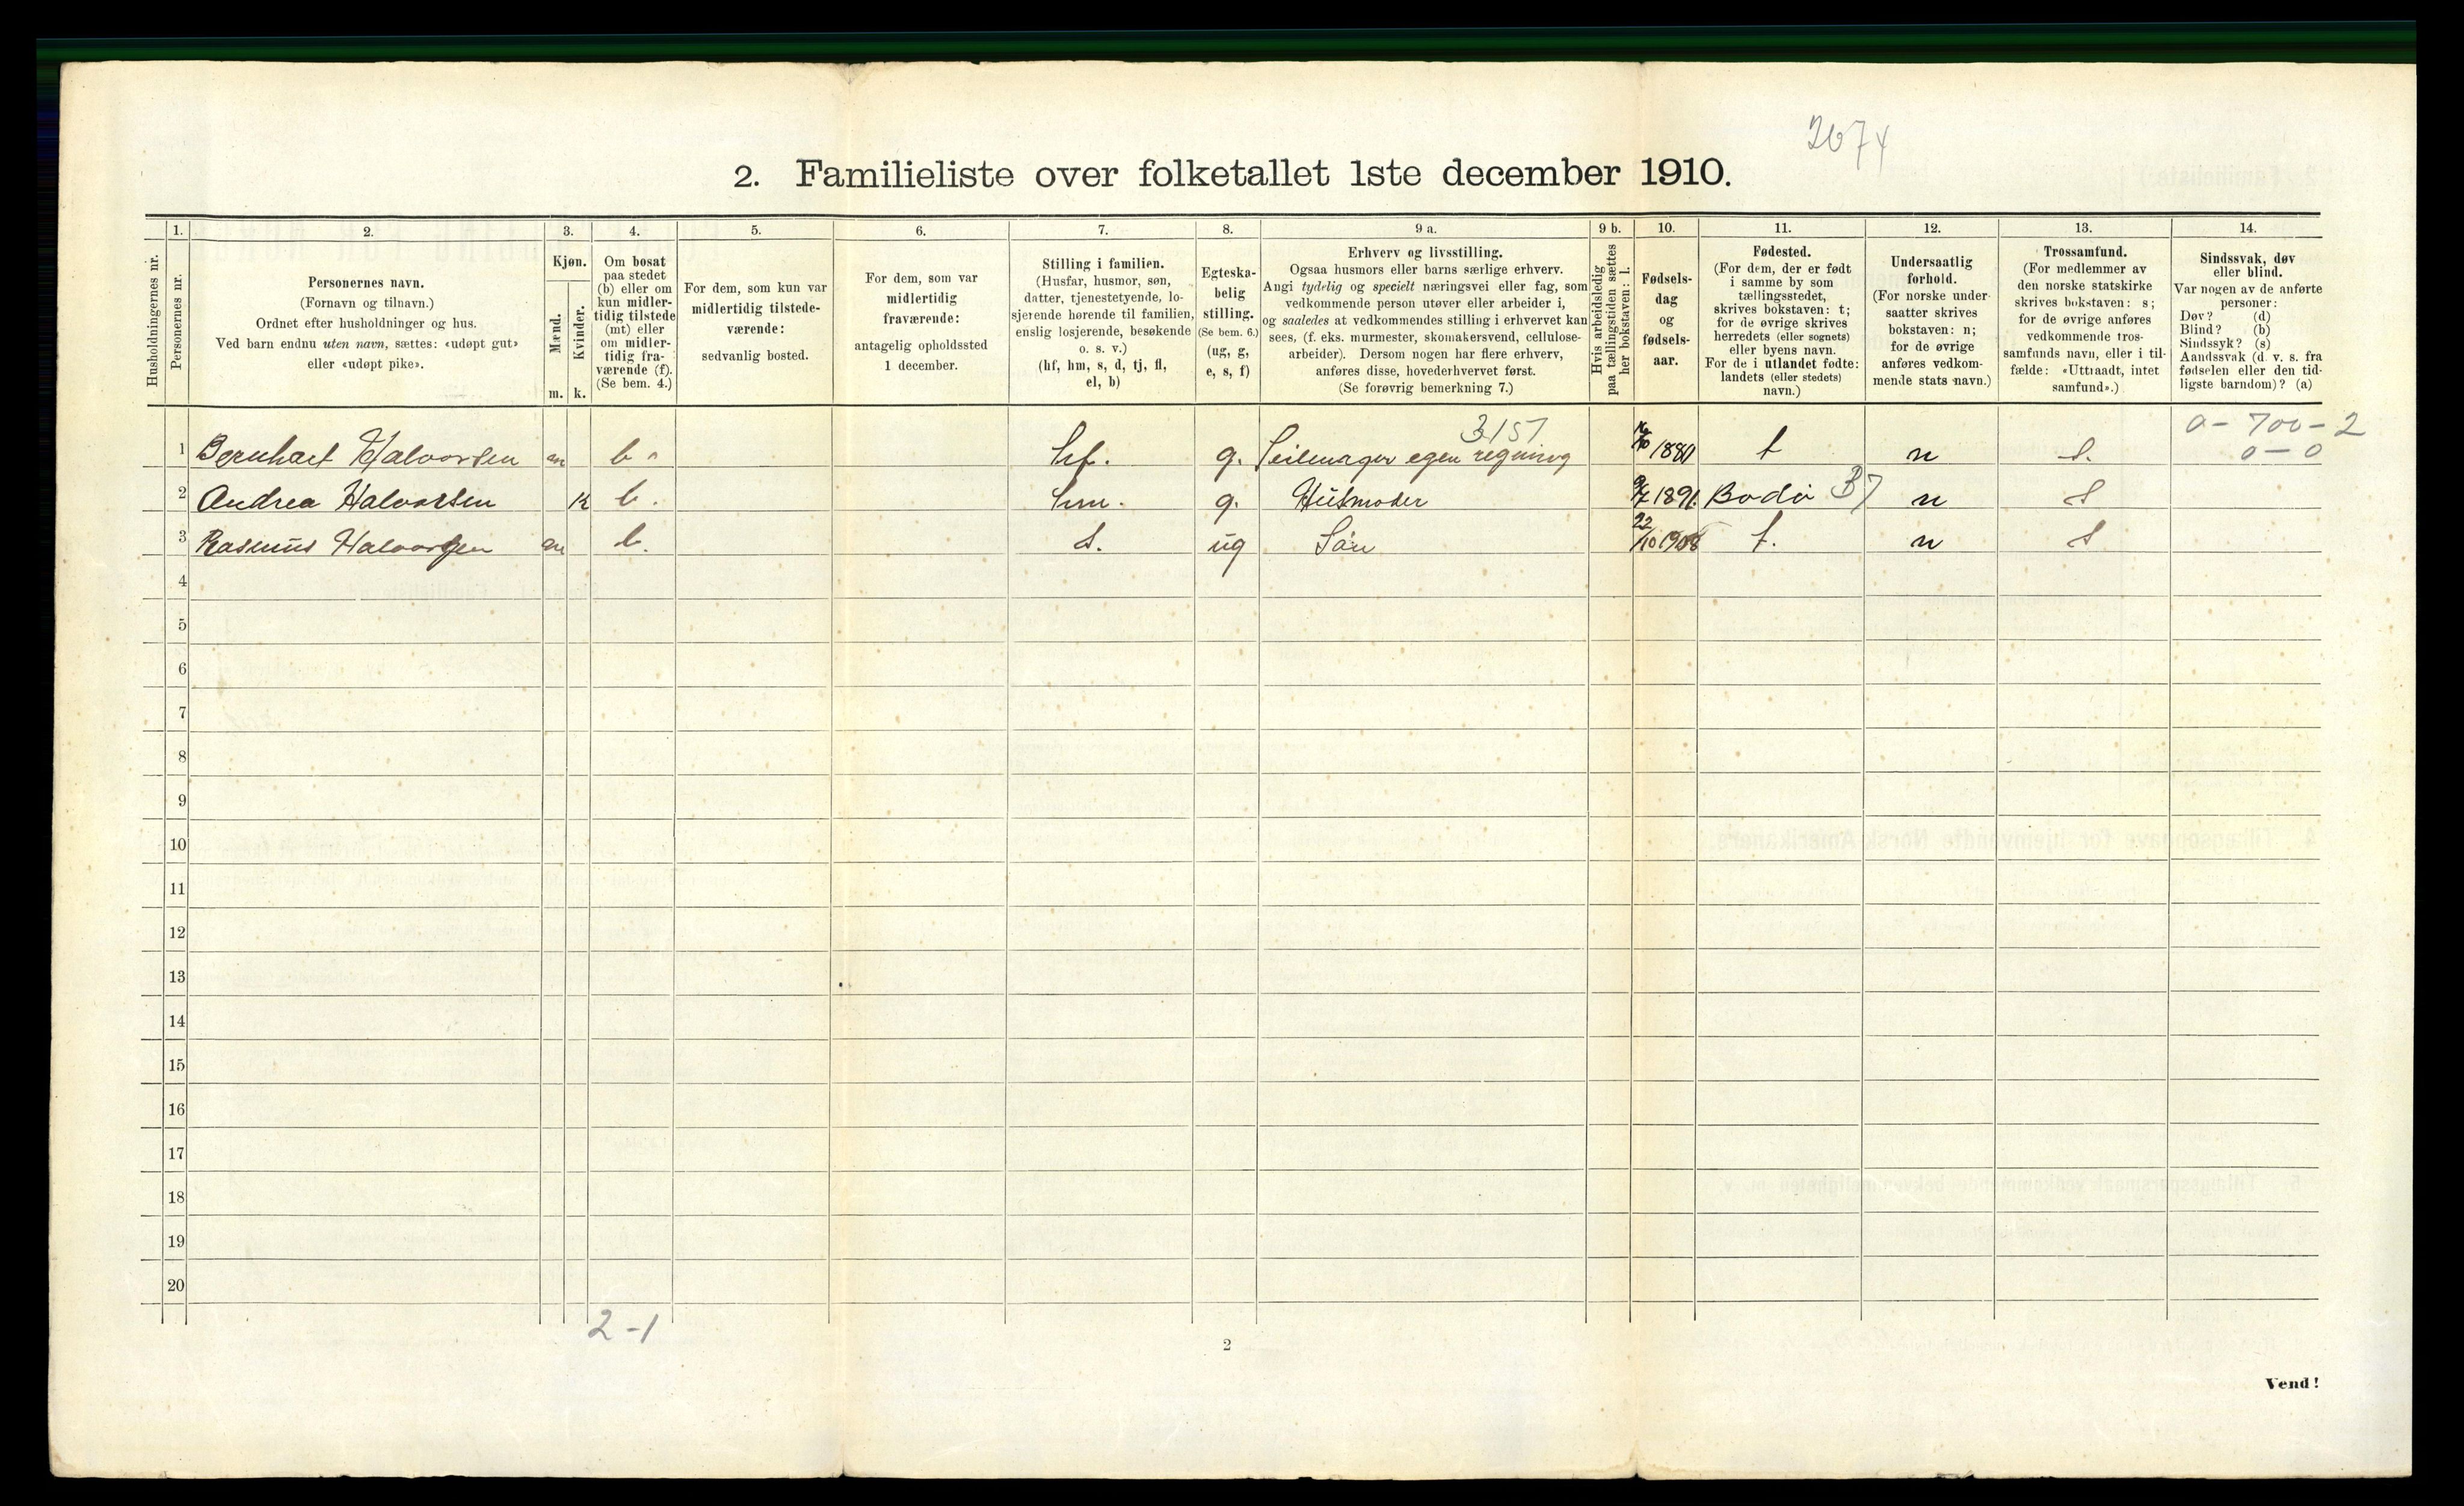 2674
2. Familieliste over folketallet 1ste december 1910.
Husholdningernes nr.
1.
Personernes nr.
2.
Personernes navn.
(Fornavn og tilnavn.)
Ordnet efter husholdninger og hus.
Ved barn endnu uten navn, sættes: «udøpt gut»
eller «udøpt pike».
3.
Kjøn.
Mænd.
Kvinder.
m. k.
4.
Om bosat
paa stedet
(b) eller om
kun midler-
tidig tilstede
(mt) eller
om midler-
tidig fra-
værende (f).
(Se bem. 4.)
5.
For dem, som kun var
midlertidig tilstede-
værende:
sedvanlig bosted.
6.
For dem, som var
midlertidig
fraværende:
antagelig opholdssted
1 december.
7.
Stilling i familien.
(Husfar, husmor, søn,
datter, tjenestetyende, lo-
sjerende hørende til familien,
enslig losjerende, besøkende
o. s. v.)
(hf, hm, s, d, tj, fl,
el, b)
8.
Egteska-
belig
stilling.
(Se bem. 6.)
(ug, g,
e, s, f)
9 a.
Erhverv og livsstilling.
Ogsaa husmors eller barns særlige erhverv.
Angi tydelig og specielt næringsvei eller fag, som
vedkommende person utøver eller arbeider i,
og saaledes at vedkommendes stilling i erhvervet kan
sees, (f. eks. murmester, skomakersvend, cellulose-
arbeider). Dersom nogen har flere erhverv,
anføres disse, hovederhvervet først.
(Se forøvrig bemerkning 7.)
9 b.
Hvis arbeidsledig
paa tællingstiden sættes
her bokstaven: l.
10.
Fødsels-
dag
og
fødsels-
aar.
11.
Fødested.
(For dem, der er født
i samme by som
tællingsstedet,
skrives bokstaven: t;
for de øvrige skrives
herredets (eller sognets)
eller byens navn.
For de i utlandet fødte:
landets (eller stedets)
navn.)
12.
Undersaatlig
forhold.
(For norske under-
saatter skrives
bokstaven: n;
for de øvrige
anføres vedkom-
mende stats navn.)
13.
Trossamfund.
(For medlemmer av
den norske statskirke
skrives bokstaven: s;
for de øvrige anføres
vedkommende tros-
samfunds navn, eller i til-
fælde: «Uttraadt, intet
samfund».)
14.
Sindssvak, døv
eller blind.
Var nogen av de anførte
personer:
Døv? (d)
Blind? (b)
Sindssyk? (s)
Aandssvak (d. v. s. fra
fødselen eller den tid-
ligste barndom)? (a)
3151 0 - 700 - 2
1 Bernhart Halvorsen m b. hf. g. Seilmager egen regning 1880 t n s. 0 - 0
2 Andrea Halvorsen k b. hm. g. Husmoder 1891 Bodø n s
3 Rasmus Halvorsen m b. s. ug Søn 22/10 1908 t. n s
4
5
6
7
8
9
10
11
12
13
14
15
16
17
18
19
20
2 - 1
2
Vend!